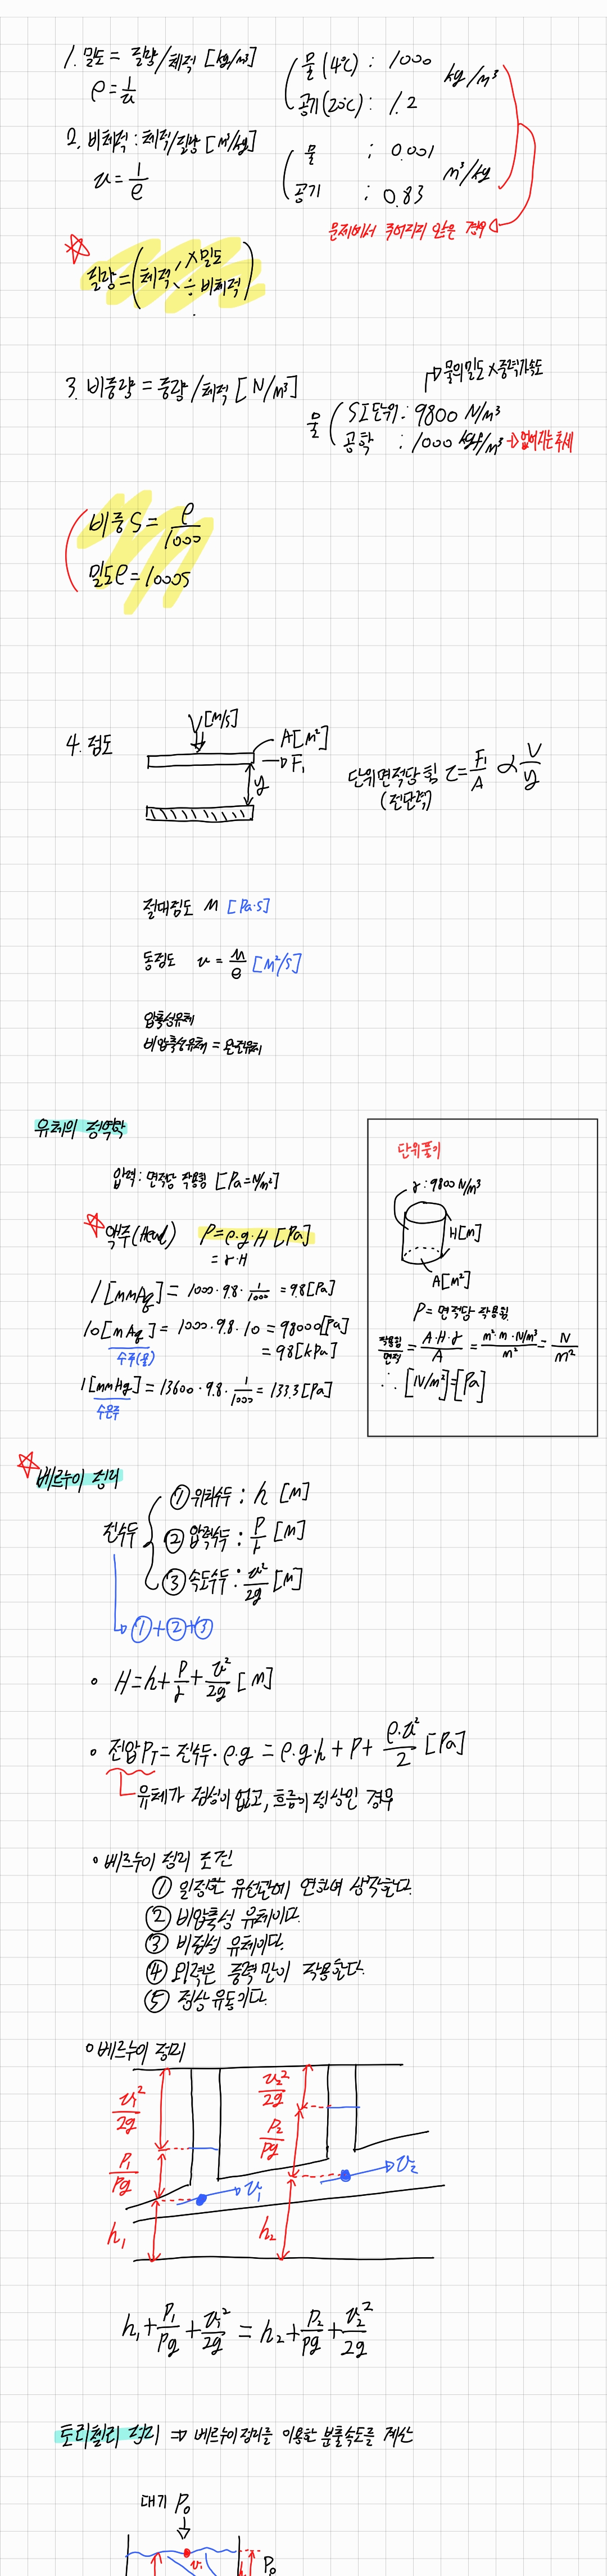 1. 밀도 = 질량/체적 [kg/m³]
ρ = 1/u
물(4℃) : 1000
공기(20℃) : 1.2
kg/m³
2. 비체적 : 체적/질량 [m³/kg]
u = 1/ρ
물 : 0.001
공기 : 0.83
m³/kg
문제에서 주어지지 않은 경우
질량 = (체적 × 밀도
÷ 비체적)
→ 물의 밀도 × 중력가속도
3. 비중량 = 중량/체적 [N/m³]
물 ( SI단위 : 9800 N/m³
공학 : 1000 kgf/m³ → 없어지는 추세
비중 S = ρ/1000
밀도 ρ = 1000S
4. 점도
V [m/s]
A[m²]
→ F₁
y
단위면적당 힘 τ = F₁/A ∝ V/y
(전단력)
절대점도 μ [Pa·s]
동점도 ν = μ/ρ [m²/s]
압축성유체
비압축성유체 = 완전유체
유체의 정역학
압력 : 면적당 작용힘 [Pa = N/m²]
액주(Head) P = ρ·g·H [Pa]
= γ·H
1[mmAq] = 1000·9.8·1/1000 = 9.8[Pa]
10[mAq] = 1000·9.8·10 = 98000[Pa]
수주(물)
= 98[kPa]
1[mmHg] = 13600·9.8·1/1000 = 133.3[Pa]
수은주
단위풀이
γ : 9800 N/m³
H[m]
A[m²]
P = 면적당 작용힘
작용힘/면적 = A·H·γ/A = m²·m·N/m³/m² = N/m²
∴ [N/m²] = [Pa]
베르누이 정리
전수두
① 위치수두 : h [m]
② 압력수두 : P/γ [m]
③ 속도수두 : v²/2g [m]
→ ①+②+③
• H = h + P/γ + v²/2g [m]
• 전압 P_T = 전수두·ρ·g = ρ·g·h + P + ρ·v²/2 [Pa]
유체가 점성이 없고, 흐름이 정상인 경우
• 베르누이 정리 조건
① 일정한 유선관에 연하여 생각한다.
② 비압축성 유체이다.
③ 비점성 유체이다.
④ 외력은 중력만이 작용한다.
⑤ 정상 유동이다.
• 베르누이 정리
v₁²/2g
P₁/ρg
h₁
v₁
v₂²/2g
P₂/ρg
h₂
v₂
h₁ + P₁/ρg + v₁²/2g = h₂ + P₂/ρg + v₂²/2g
토리첼리 정리 ⇒ 베르누이정리를 이용한 분출속도를 계산
대기 P₀
v₁
P₀